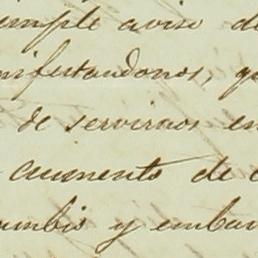 simple aviso de
nifestandonos, qu
de servirnos en
aumento de c
umbis y embar